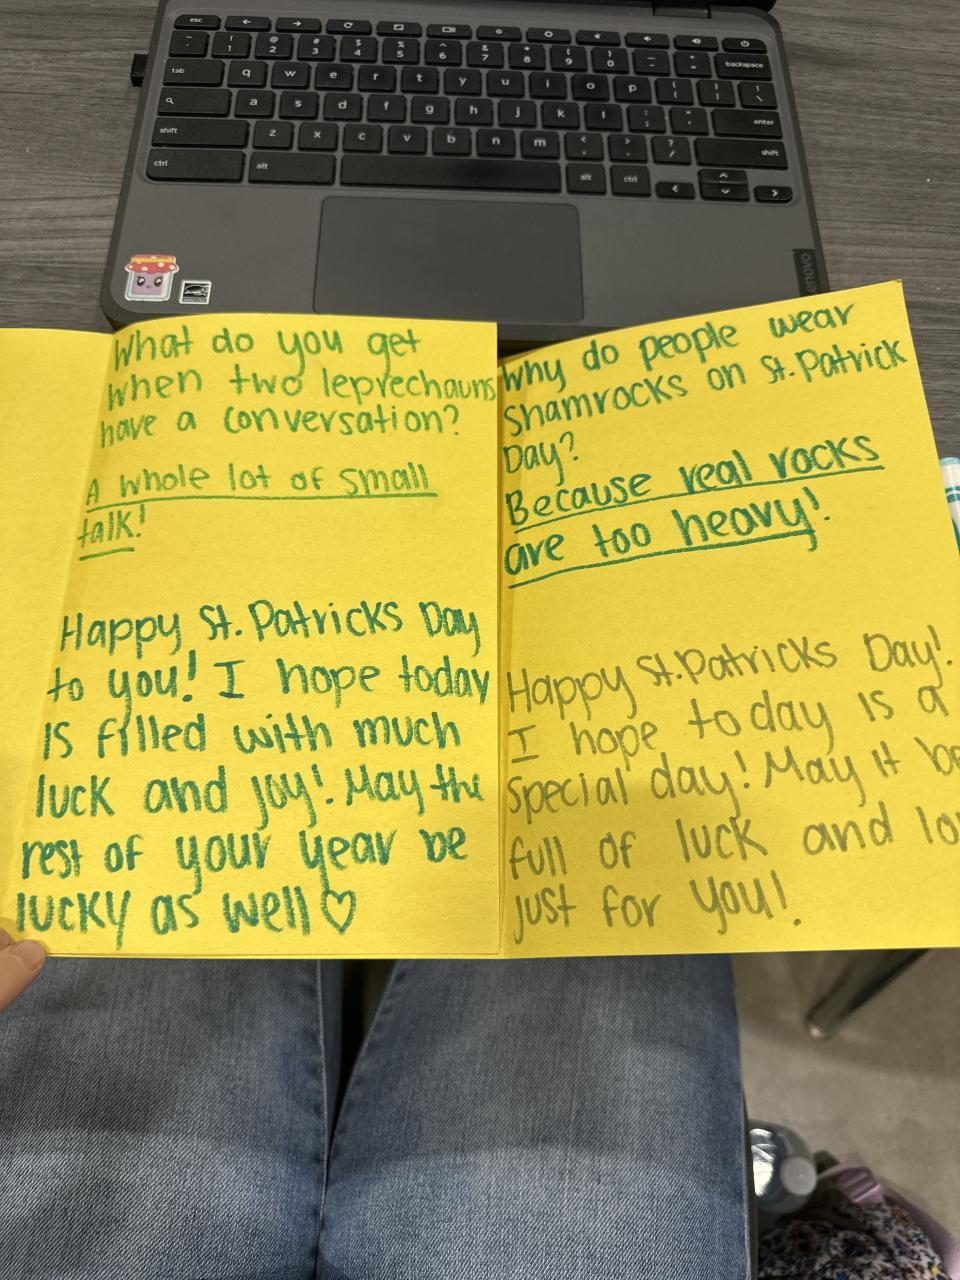 esc
~ ` ! 1 @ 2 # 3 $ 4 % 5 ^ 6 & 7 * 8 ( 9 ) 0 backspace
tab q w e r t y u i o p { [ } ] | \
a s d f g h j k l : ; enter
shift z x c v b n m < , > . ? / shift
ctrl alt alt ctrl
lenovo
What do you get
when two leprechauns
have a conversation?
A whole lot of small
talk!
Happy St. Patricks Day
to you! I hope today
is filled with much
luck and joy! May the
rest of your year be
lucky as well♡
Why do people wear
Shamrocks on St. Patrick
Day?
Because real rocks
are too heavy!
Happy St. Patricks Day!
I hope today is a
special day! May it be
full of luck and
just for you!